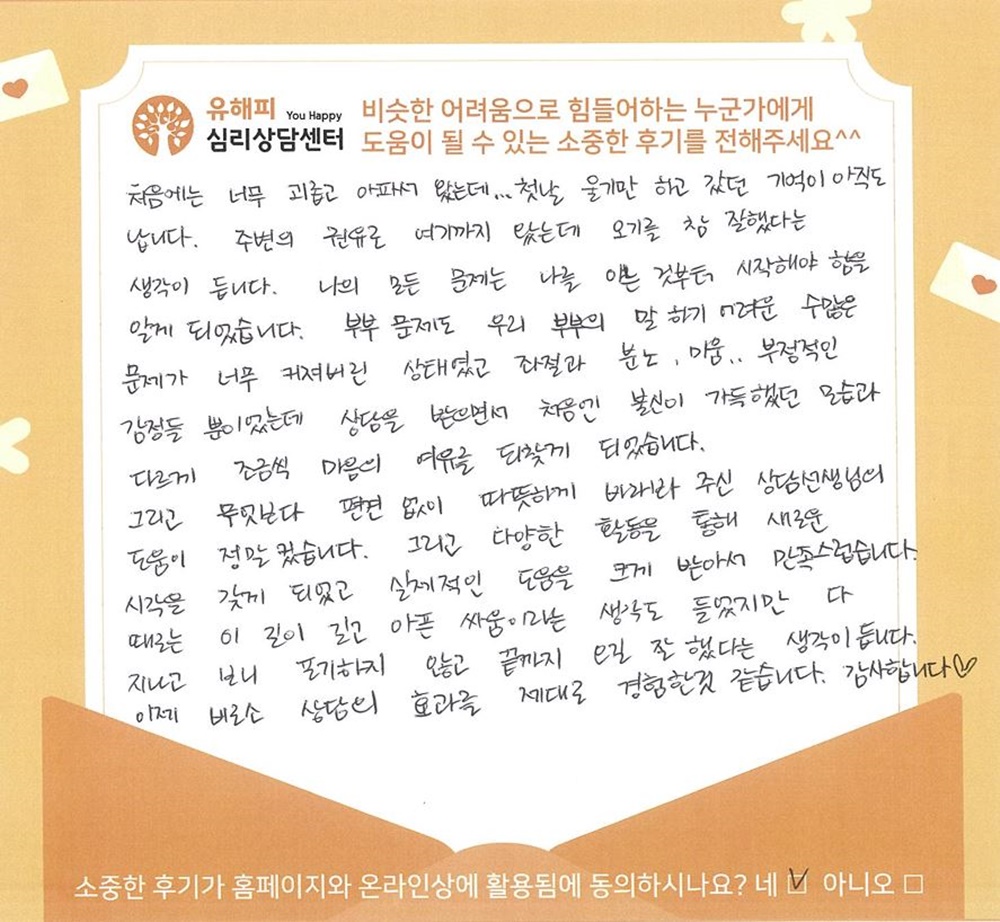 유해피 You Happy
심리상담센터
비슷한 어려움으로 힘들어하는 누군가에게
도움이 될 수 있는 소중한 후기를 전해주세요^^
처음에는 너무 괴롭고 아파서 왔는데... 첫날 울기만 하고 갔던 기억이 아직도
납니다. 주변의 권유로 여기까지 왔는데 오기를 참 잘했다는
생각이 듭니다. 나의 모든 문제는 나를 아는 것부터 시작해야 함을
알게 되었습니다. 부부 문제도 우리 부부의 말 하기 어려운 수많은
문제가 너무 커져버린 상태였고 좌절과 분노, 미움.. 부정적인
감정들 뿐이었는데 상담을 받으면서 처음엔 불신이 가득했던 모습과
다르게 조금씩 마음의 여유를 되찾게 되었습니다.
그리고 무엇보다 편견 없이 따뜻하게 바라봐 주신 상담선생님의
도움이 정말 컸습니다. 그리고 다양한 활동을 통해 새로운
시각을 갖게 되었고 실제적인 도움을 크게 받아서 만족스럽습니다.
때로는 이 길이 길고 아픈 싸움이라는 생각도 들었지만 다
지나고 보니 포기하지 않고 끝까지 오길 잘 했다는 생각이 듭니다.
이제 비로소 상담의 효과를 제대로 경험한것 같습니다. 감사합니다♡
소중한 후기가 홈페이지와 온라인상에 활용됨에 동의하시나요? 네 ☑ 아니오 □